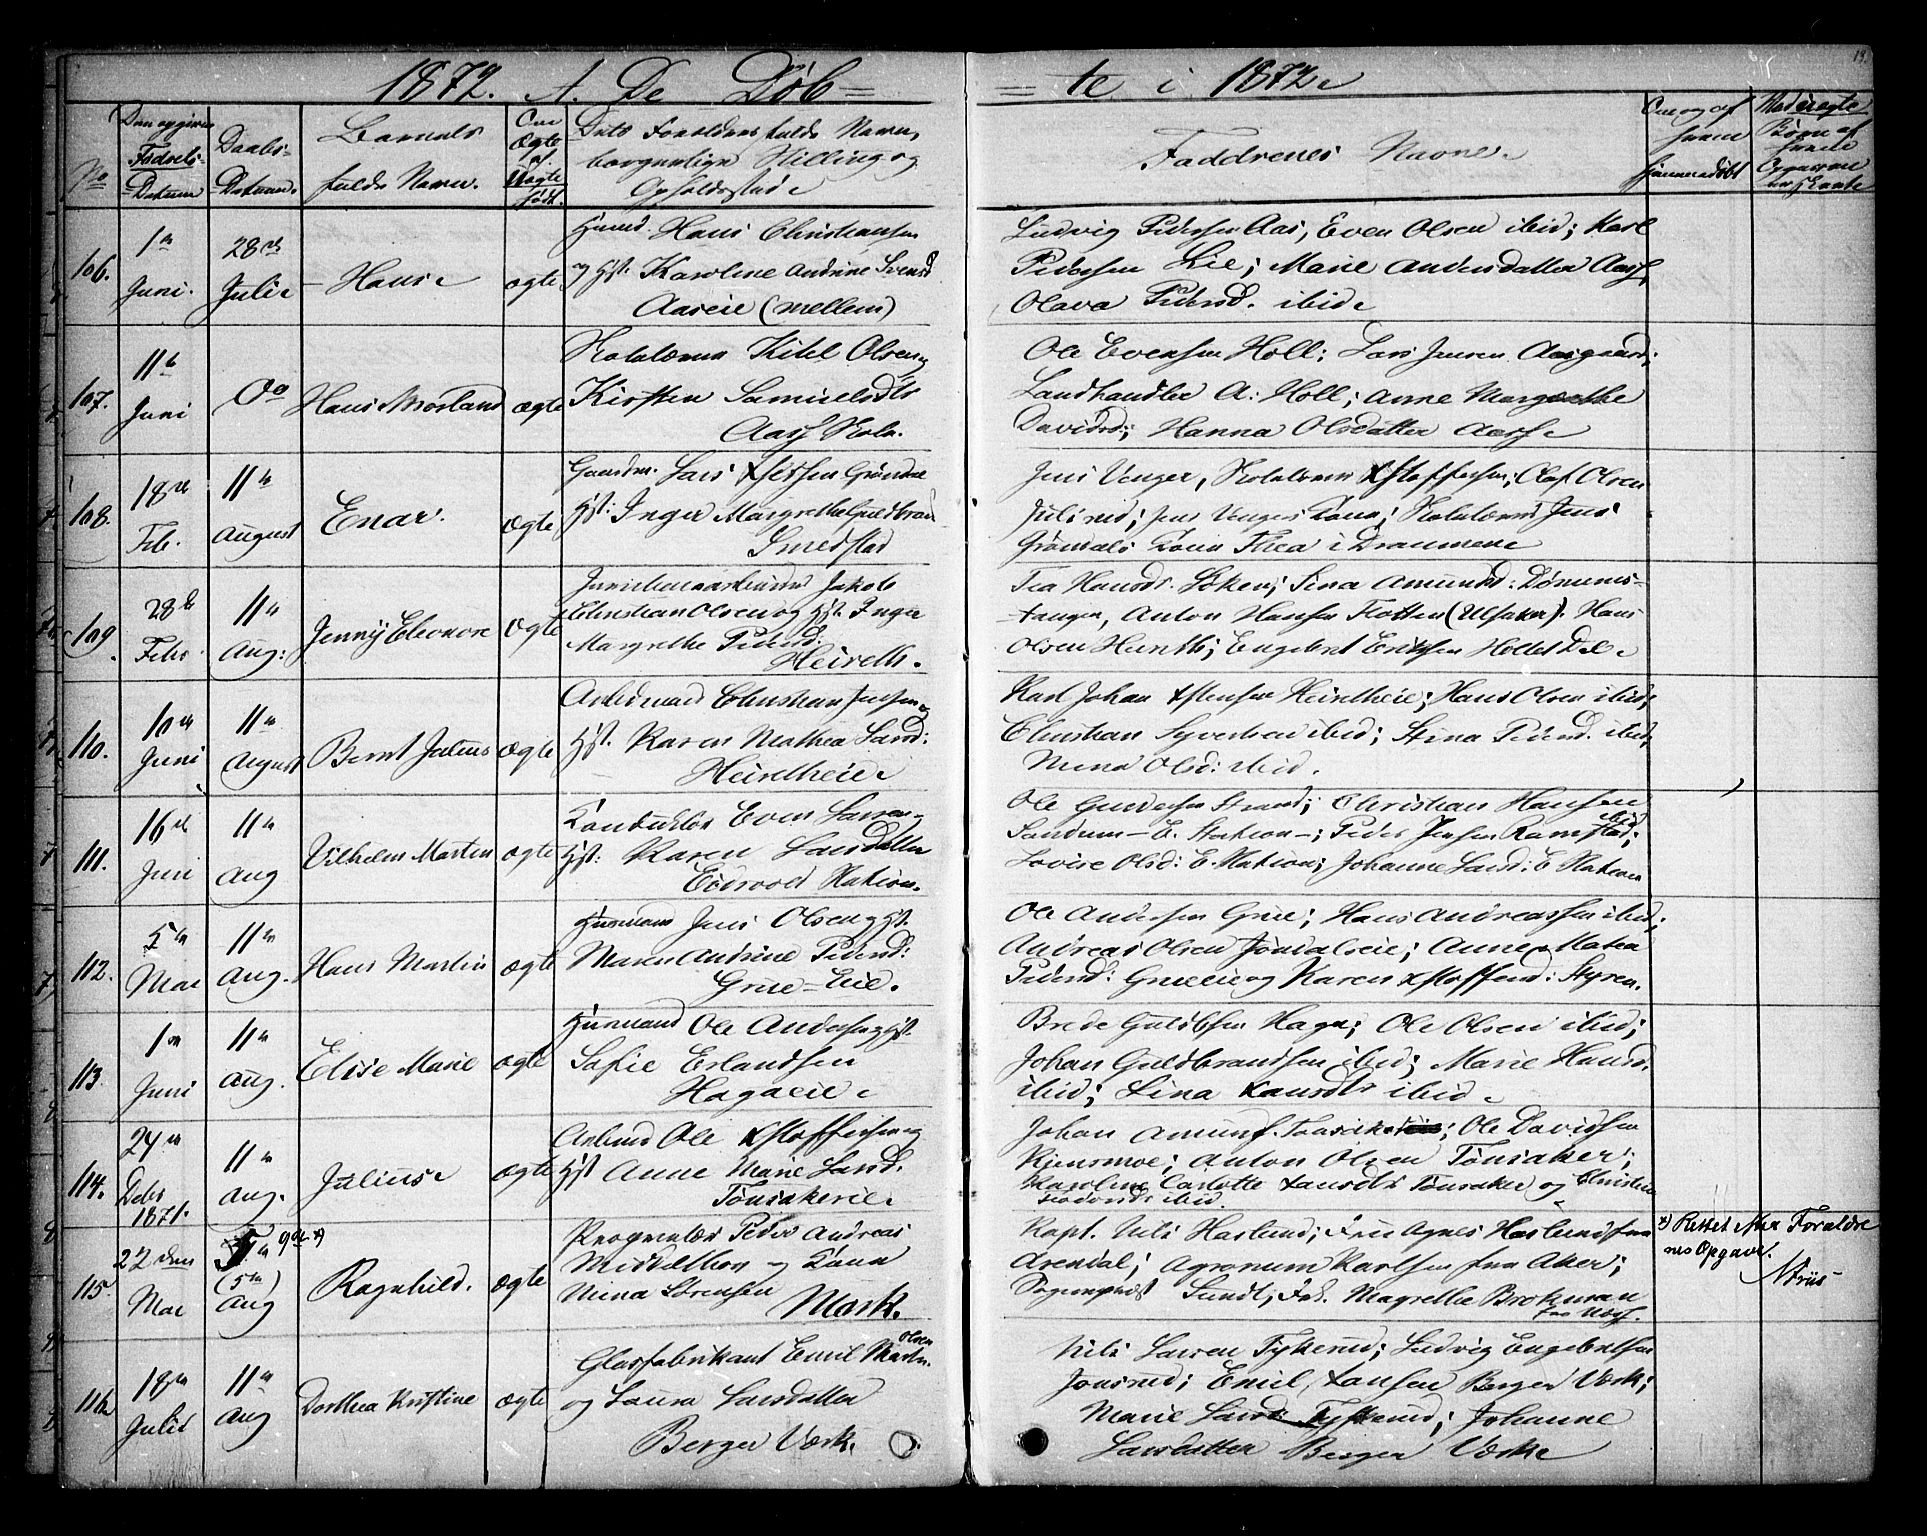 1872. A. De Døb= =te i 1872.
19.
No
Den opgivne Fødsels-Datum
Daabs-Datum.
Barnets fulde Navn.
Om Ægte el. Uægte Født.
Dets Forældres fulde Navn, borgerlige Stilling og Opholdssted
Faddrenes Navne.
Om og af hvem hjemmedøbt
106.
1ste Juni.
28de Juli
Hans
ægte
Husmd. Hans Christiansen
og Hst. Karoline Andrine Svensd
Aaseie (mellem)
Ludvig Pedersen Aas, Even Olsen ibid; Karl
Pedersen Lie; Marie Andersdatter Aas,
Olava Pedersd. ibid
107.
11te Juni
Do
Hans Morland
ægte
Skolelærer Kitel Olsen og
Kirsten Samuelsdtr
Aas Skole.
Ole Evensen Holl; Lars Jensen Aasgaard;
Landhandler A. Holl; Anne Margrethe
Davidsd; Hanna Olsdatter Aas
108.
18de Feb.
11te August
Enar.
ægte
Gaardm. Lars Grøndal
Hst: Inger Margrethe Guldbran
Smedstad
Jens Venger, Skolelærer Olaf Olsen
Julsrud; Jens Vengers Kone; Skolelærer Jens
Grøndals Kone Thea i Drammen
109.
28de Febr.
11te Aug:
Jenny Eleonore
ægte
Jernbanearbeider Jakob
Christian Olsen og Hst. Inger
Margrethe Pedersd:
Tea Hansdr. Søken; Lina Amundsd: Dønnes-
tangen, Anton Hansen Flotten (Ulsaker). Hans
Olsen; Engebret Eriksen
110.
10de Juni
11te August
Bernt Julius
ægte
Arbeidmand Christian Jensen og
Hst. Karen Mathea Larsd:
Karl Johan; Hans Olsen ibid;
Christian Syversen ibid; Stina Pedersd. ibid,
Mina Olsd: ibid.
111.
16de Juni
11te Aug
Vilhelm Martin
ægte
Konduktør Even Larsen
Hst: Karen Larsdatter
Eidsvold Station.
Ole Gundersen Strand; Christian Hansen
Sandum - E. Station -; Peder Jensen Ramstad;
Lovise Olsd: E. Station; Johanne Larsd: E Station
112.
5te Mai
11te Aug.
Hans Martin
ægte
Husmand Jens Olsen og Hst.
Maren Andrine Pedersd:
Grue-Eie.
Ole Andersen Grue; Hans Andreassen ibid;
Andreas Olsen; Anne Matea
Pedersd: Grueeie og Karen: Styren.
113.
1ste Juni
11te Aug.
Elise Marie
ægte
Husmand Ole Andersen og Hst.
Sofie Erlandsen
Hagaeie
Brede Guldbsen Haga; Ole Olsen ibid;
Johan Guldbrandsen ibid; Marie Hansd.
ibid; Lina Hansdtr ibid
114.
24de Debr 1871.
11te Aug.
Julius
ægte
Arbmd Ole Kstoffersen og
Hst Anne Marie Larsd.
Tønsakereie
Johan Amunds. Tønsaker; Ole Davidsen
Kjensmoe; Anton Olsen Tønsaker;
Karoline Carlotte Hansdtr Tønsaker og Christine
ibid
115.
22den Mai
9de x)
(5te) Aug
Ragnhild.
ægte
Peder Andreas
Mickelthon og Kone
Mina Sørensen
Mork.
Kapt. Nils Haslund; Frue Agnes Haslund fra
Arendal; Agronom Karlsen fra Aker;
Sundt; Frk. Magrethe Brokman
x) Rettet efter Foreldre
nes Opgave.
Friis
116.
18de Juli
11te Aug
Dorthea Kristine
ægte
Glasfabrikant Emil Martin Olsen
og Laura Larsdatter
Berger Værk.
Nils Larsen Tykerud; Ludvig Engebretsen
Jonsrud; Emil Hansen Berger Værk;
Marie Larsd: Tykerud; Johanne
Larsdatter Berger Værk